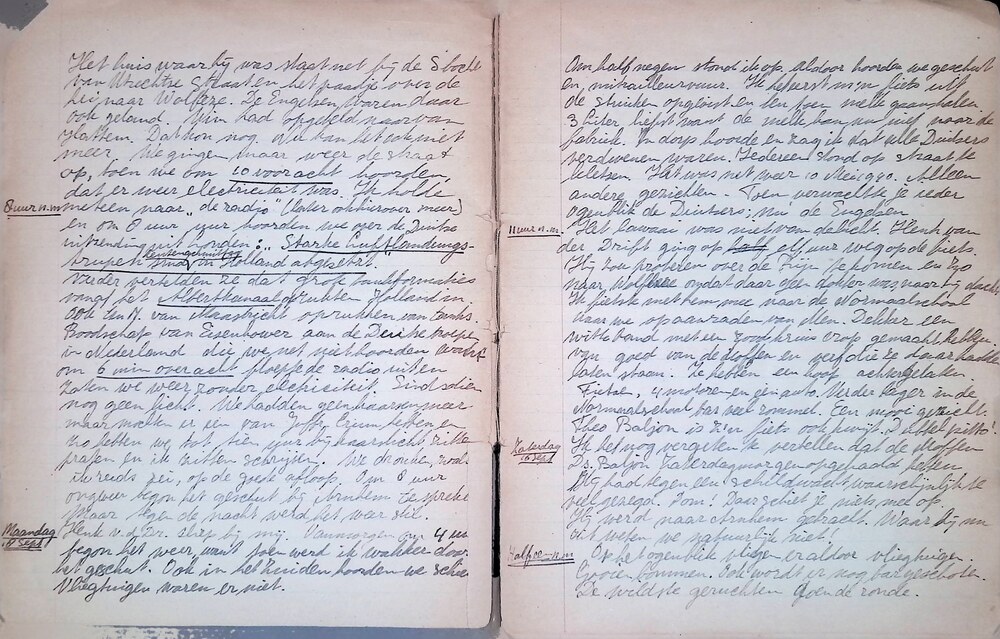 Het huis waar hij was staat net bij de S bocht
van Utrechtse Straat en het paadje over de
hei naar Wolfeze. De Engelsen waren daar
ook geland. Wim had opgebeld naar van
Hattem. Dat kon nog. Nu kan het ook niet
meer. We gingen maar weer de straat
op, toen we om 10 voor acht hoorden
dat er weer electriciteit was. Ik holde
8 uur n.m.
meteen naar "de radjo" (later ook hierover meer)
en om 8 uur hoorden we over de Duitse
uitzending uit Londen: "Starke Luftlandungs-
trupen sind in Holland abgesetzt."
Verder vertelden ze dat grote tankformaties
vanaf het Albertkanaal oprukten Holland in
ook ten N. van Maastricht oprukken van tanks.
Boodschap van Eisenhower aan de Duitse troepen
in Nederland die we net niet hoorden want
om 6 min over acht floepte de radio uit en
zaten we weer zonder electriciteit. Sindsdien
nog geen licht. We hadden geen kaarsen meer
maar mochten er een van Joffr. hebben en
zo hebben we tot tien uur bij kaarslicht zitten
praten en ik zitten schrijven. We dronken, zoals
ik reeds zei, op de goede afloop. Om 8 uur
ongeveer begon het geschut bij Arnhem te spreken
maar tegen de nacht werd het waar stil.
Maandag
18 Sept
Henk v.d. Dr. sliep bij mij. Vanmorgen om 4 uur
begon het weer, want toen werd ik wakker door
het geschut. Ook in het Zuiden hoorden we schieten
Vliegtuigen waren er niet.
Om half negen stond ik op. Aldoor hoorden we geschut
en mitrailleurvuur. Ik heb eerst m'n fiets uit
de struiken opgelost en ben toen melk gaan halen.
3 liter liefst want de melk kan nu niet naar de
fabriek. In dorp hoorde en zag ik dat alle Duitsers
verdwenen waren. Iedereen stond op straat te
kletsen. Het was net weer 10 Mei 1940. Alleen
andere gezichten. Toen verwachtte je ieder
ogenblik de Duitsers; nu de Engelsen.
11 uur v.m.
Het lawaai was niet van de lucht. Henk van
der Drift ging op half elf uur weg op de fiets.
Hij zou proberen over de Rijn te komen en zo
naar Wolfheze omdat daar geen dokter was naar hij dacht.
Ik fietste met hem mee naar de Normaalschool
waar we op aanraden van Men. Dekker een
witte band met een rood kruis erop gemaakt hebben
van goed van de Moffen en verf die ze daar hadden
laten staan. Ze hebben een hoop achtergelaten.
Fietsen, 4 motoren en een auto. Verder leger in de
Normaalschool bar veel rommel. Een mooi gezicht.
Theo Baljon is z'n fiets ook kwijt.
Zaterdag
16 Sept
Ik heb nog vergeten te vertellen dat de Moffen
Ds. Baljon Zaterdagmorgen opgehaald hebben.
Hij had tegen een schildwacht waarschijnlijk te
veel gezegd. Dom! Daar schiet je niets mee op.
Hij werd naar Arnhem gebracht. Waar hij nu
zit weten we natuurlijk niet!
Op het ogenblik vliegen er aldoor vliegtuigen
Gooien bommen. Ook wordt er nog bar geschoten.
De wildste geruchten doen de ronde.